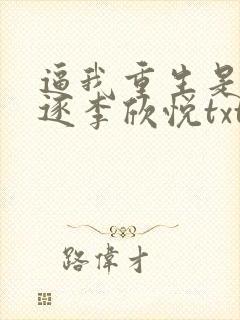 逼我重生是
逐李欣悦txt
路偉才